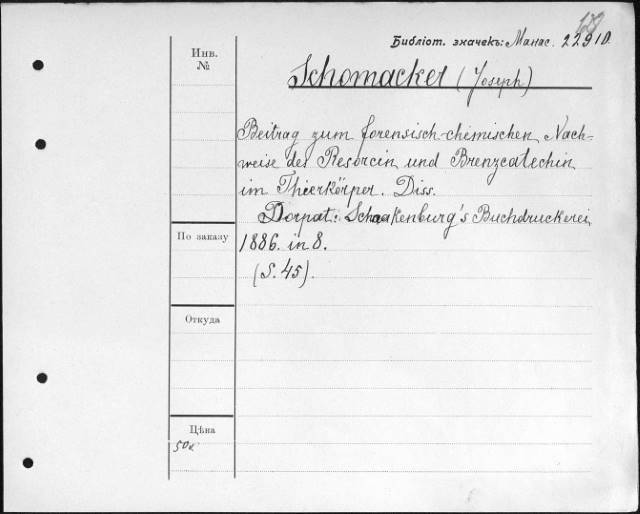 128
Библіот. значекъ: Манас. 22910.
Инв.
№
Schomacker (Joseph)
Beitrag zum forensisch-chemischen Nach-
weise des Resorcin und Brenzcatechin
im Thierkörper. Diss.
Dorpat: Schnakenburg's Buchdruckerei
По заказу
1886. in 8.
(S. 45).
Откуда
Цѣна
50к